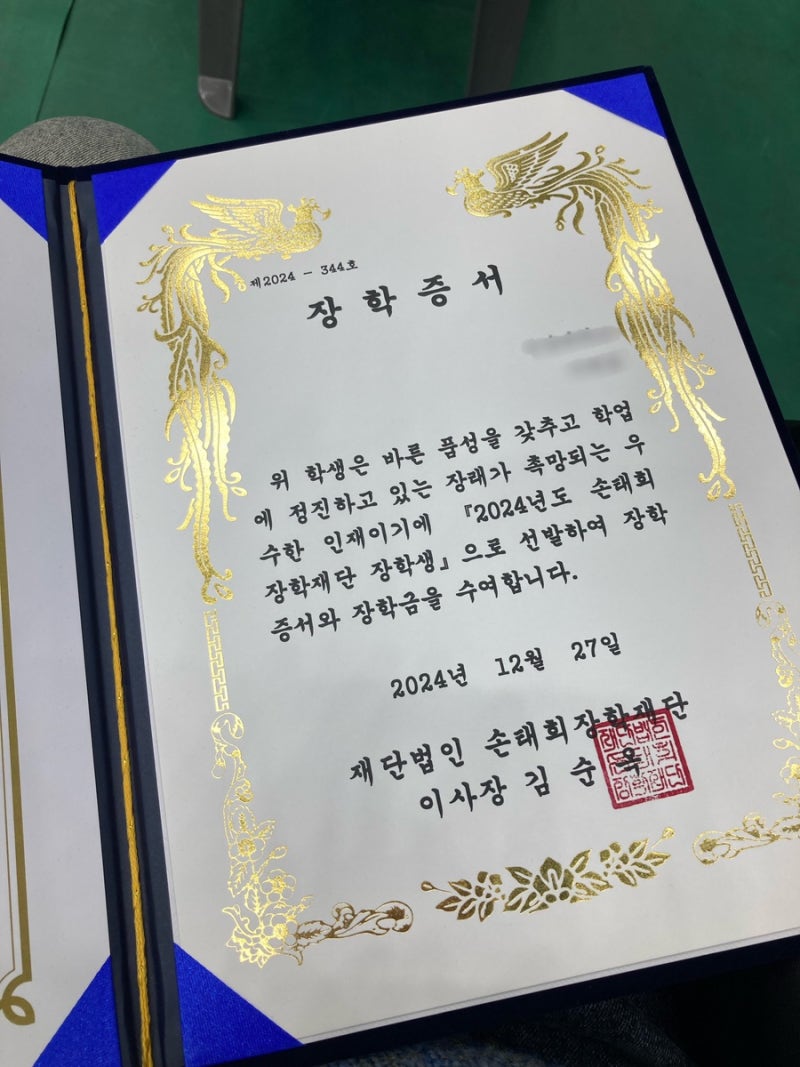 제2024 - 344호
장학증서
위 학생은 바른 품성을 갖추고 학업
에 정진하고 있는 장태가 촉망되는 우
수한 인재이기에 『2024년도 손태희
장학재단 장학생』으로 선발하여 장학
증서와 장학금을 수여합니다.
2024년 12월 27일
재단법인 손태희장학재단
이사장 김순옥